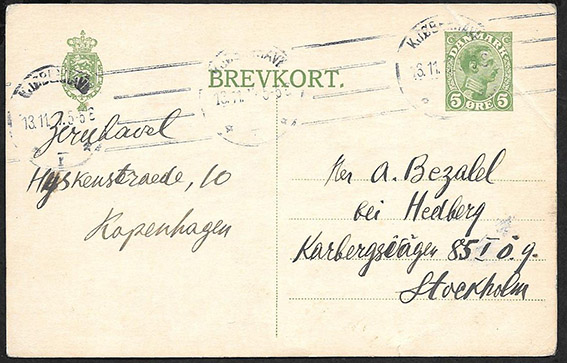 BREVKORT.
DANMARK
5 ØRE 5
KJØBENHAVN
13.11. 5-6 E
Jeruhavel
Hyskenstraede, 10
Kopenhagen
Her A. Bezalel
bei Hedberg
Karbergsvägen 85 I ö. g.
Stockholm